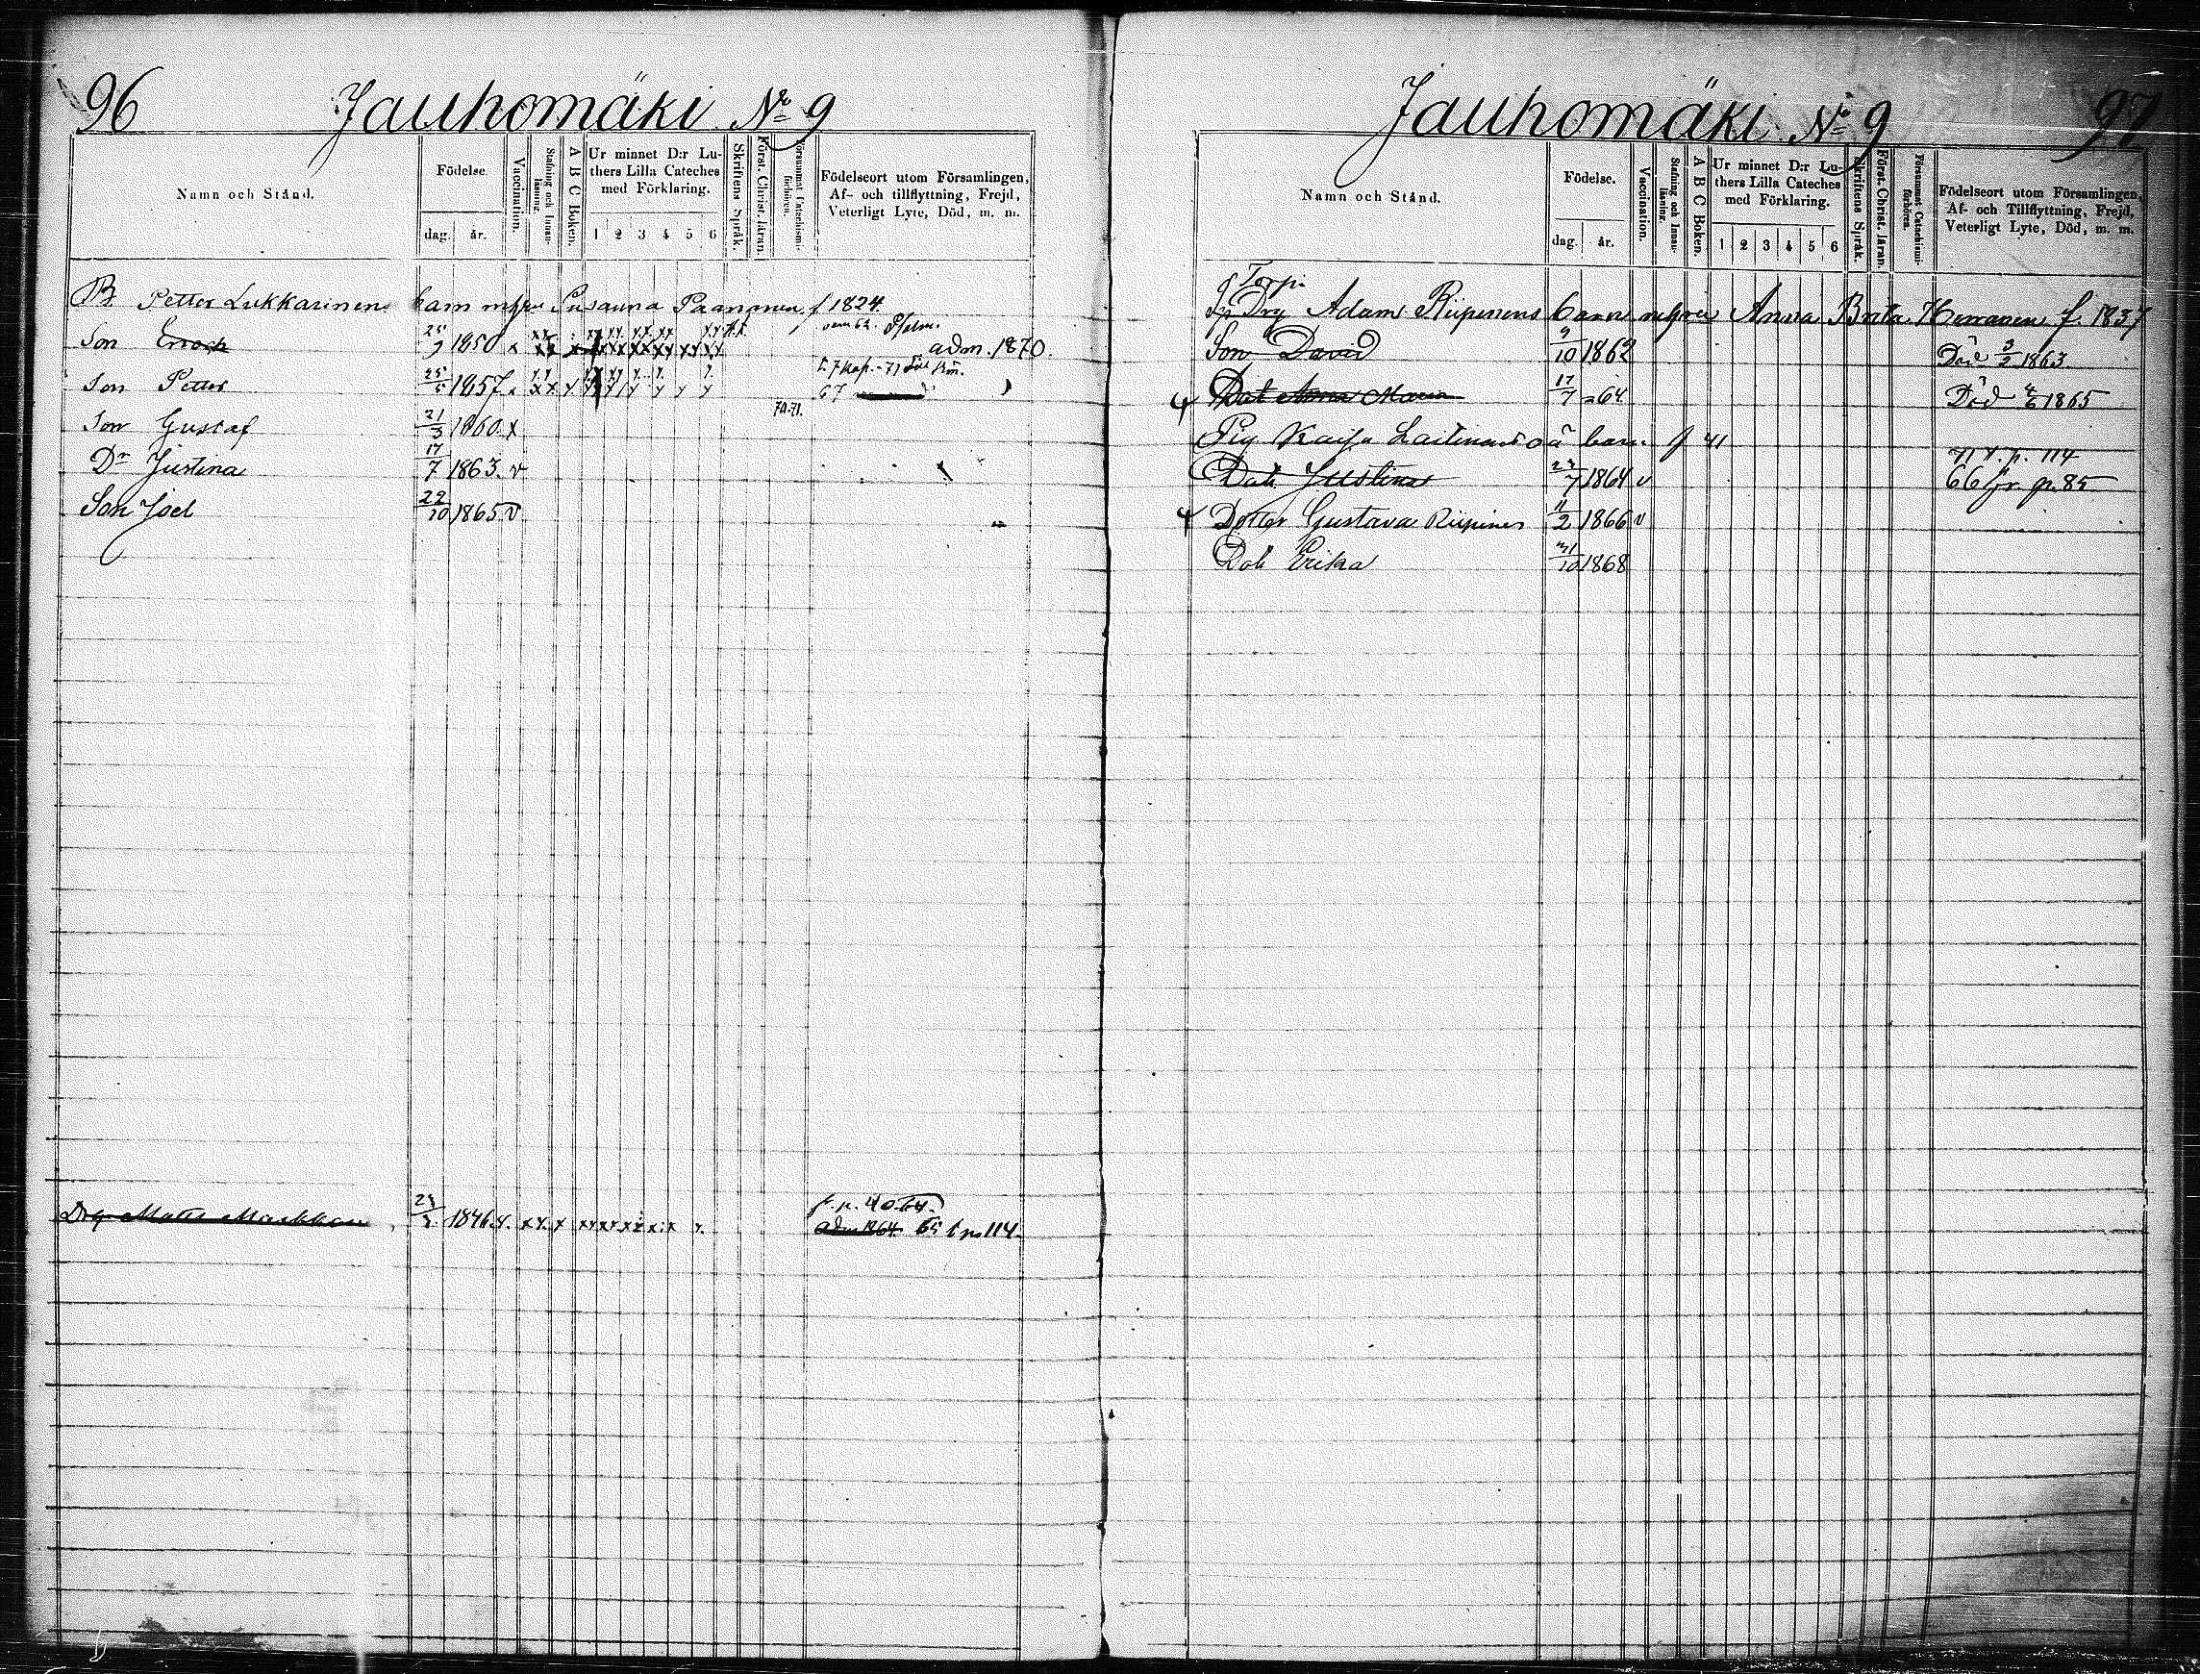 96 Jauhomäki No 9
Namn och Stånd.
Födelse.
dag. år.
Vaccination.
Stafning och Innanläsning.
A B C Boken.
Ur minnet D:r Luthers Lilla Cateches med Förklaring.
1 2 3 4 5 6
Skriftens Språk.
Först. Christ. läran.
Försummat Catechismiförhören.
Födelseort utom Församlingen, Af- och tillflyttning, Frejd, Veterligt Lyte, Död, m. m.
B Petter Lukkarinens barn m hu Susanna Paananen f 1824.
Son Enock 25/9 1850 x adm. 1870.
Son Petter 25/5 1857. x 67
70.71.
Son Gustaf 21/3 1860. x
Dr Justina 17/7 1863. v
Son Joel 22/10 1865 v
Drg Matts Markkan 1846 f. p. 40. 64.
adm 1864 65 t p 114.
Jauhomäki No 9 97
Namn och Stånd.
Födelse.
dag. år.
Vaccination.
Stafning och Innanläsning.
A B C Boken.
Ur minnet D:r Luthers Lilla Cateches med Förklaring.
1 2 3 4 5 6
Skriftens Språk.
Först. Christ. läran.
Försummat Catechismiförhören.
Födelseort utom Församlingen, Af- och Tillflyttning, Frejd, Veterligt Lyte, Död, m. m.
Torp.
Drg Adam Riipinens barn Anna Brita f. 1837
Son David 9/10 1862 Död 3/2 1863.
Dot Anna Maria 17/7 = 64 Död 4/6 1865
Pig Kaisa Laitinens oä barn f 41
p. 114
Dott Justina 1864 v 66 fr. p. 85
Dotter Gustava Riipinen 11/2 1866 v
Dott Erika 31/10 1868